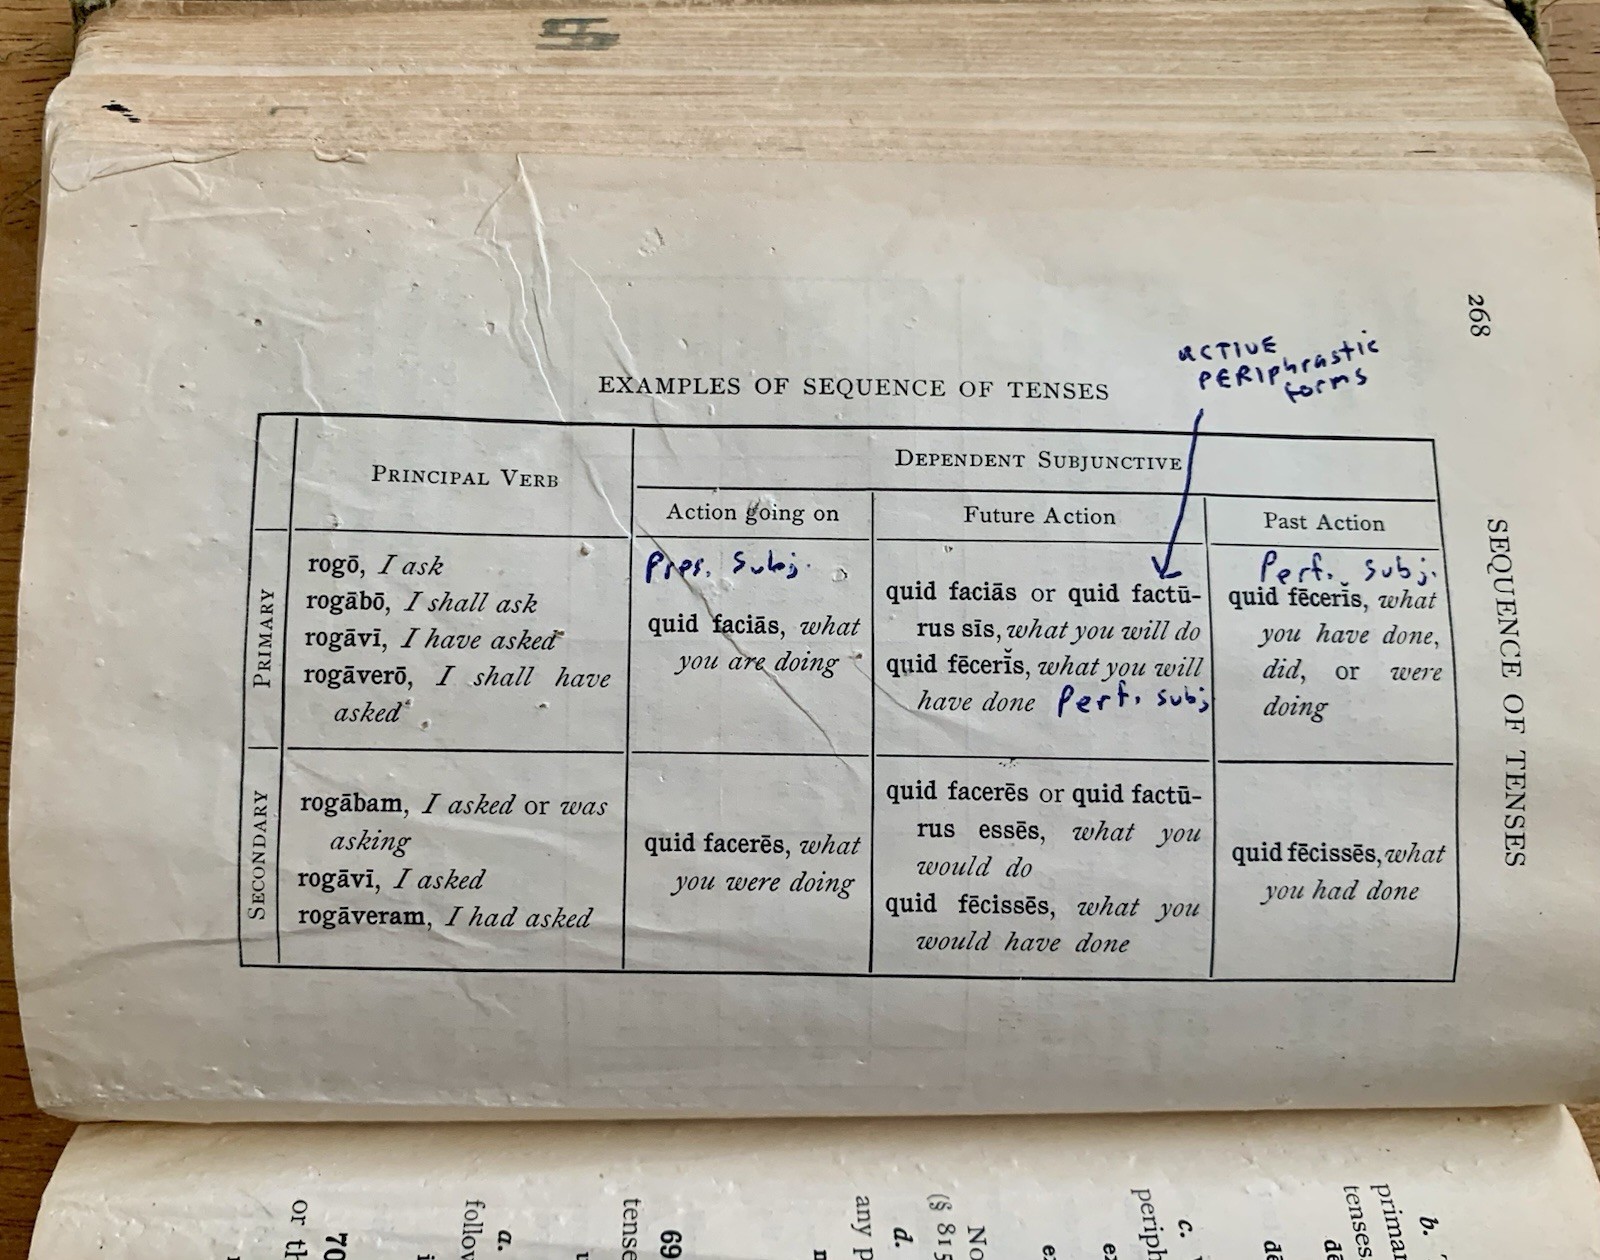 268
SEQUENCE OF TENSES
ACTIVE
PERIphrastic
forms
EXAMPLES OF SEQUENCE OF TENSES
PRINCIPAL VERB
DEPENDENT SUBJUNCTIVE
Action going on
Future Action
Past Action
PRIMARY
rogō, I ask
rogābō, I shall ask
rogāvī, I have asked
rogāverō, I shall have
asked
Pres. Subj.
quid faciās, what
you are doing
quid faciās or quid factū-
rus sīs, what you will do
quid fēcerĭ̄s, what you will
have done Perf. subj
Perf. subj.
quid fēcerĭ̄s, what
you have done,
did, or were
doing
SECONDARY
rogābam, I asked or was
asking
rogāvī, I asked
rogāveram, I had asked
quid facerēs, what
you were doing
quid facerēs or quid factū-
rus essēs, what you
would do
quid fēcissēs, what you
would have done
quid fēcissēs, what
you had done
b.
primar
tenses
dē
dē
c.
periph
ex
ex
No
(§ 815
d.
any p
69
tense
a.
follov
70
or th